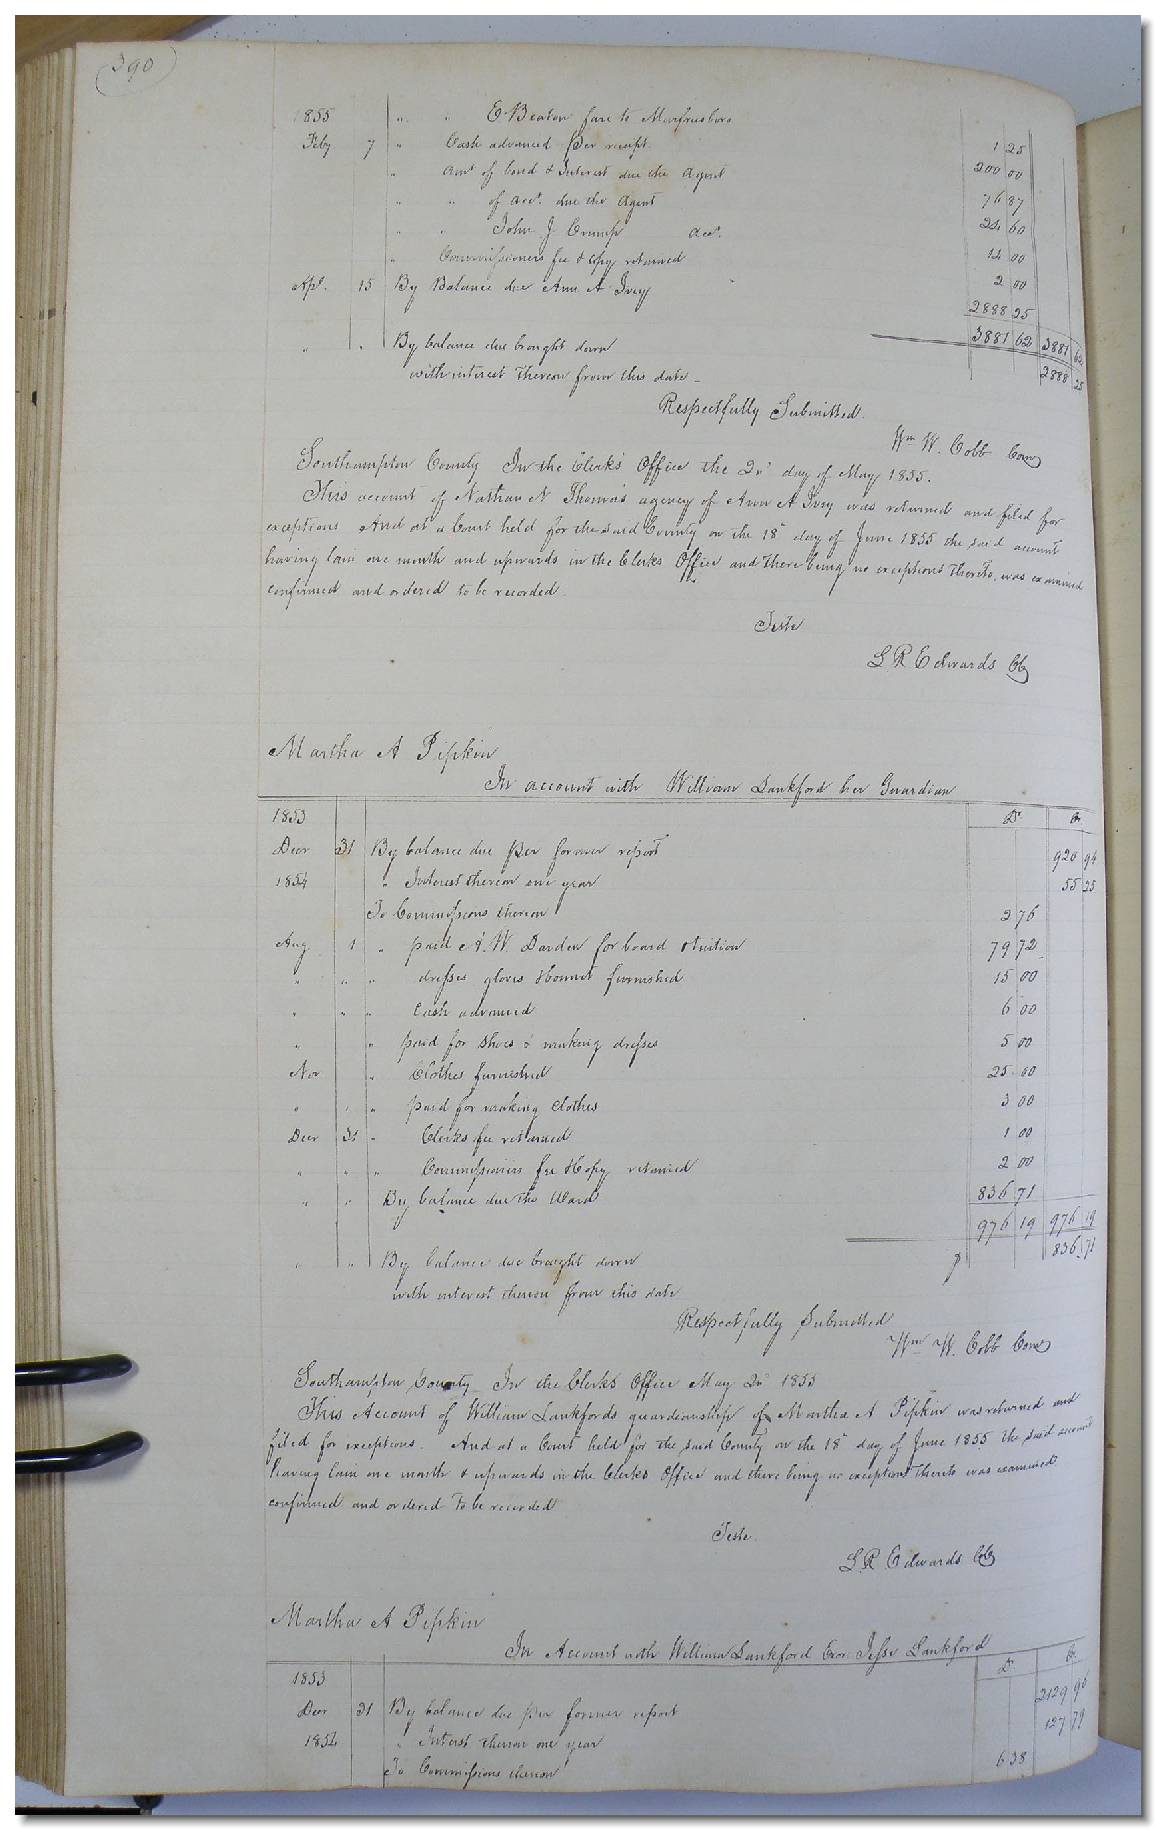 390
1855 " " E Beaton fare to Murfresboro 1 25
Feby 7 " Cash advanced per receipt 200 00
" Amt of bond & Interest due the Agent 76 87
" " of acct. due the Agent 24 60
" " John J Crump acct. 12 00
" Commissioners fee & copy returned 2 00
Apl. 15 By Balance due Ann A Ivey 2888 25
3881 62 3881 62
" " By balance due brought down 2888 25
with interest thereon from this date
Respectfully Submitted.
Wm W. Cobb Comr
Southampton County In the Clerk's Office the 2d day of May 1855.
This account of Nathan N Thomas agency of Ann A Ivey was returned and filed for
exceptions And at a Court held for the said County on the 18th day of June 1855 the said account
having lain one month and upwards in the Clerks Office and there being no exceptions thereto, was examined
confirmed and ordered to be recorded.
Teste
L R Edwards CC
Martha A Pipkin
In account with William Lankford her Guardian
1853 Dr. Cr.
Decr 31 By balance due per former report 920 94
1854 " Interest thereon one year 55 25
To Commissions thereon 2 76
Aug 1 " paid A. W. Darden for board & tuition 79 72
" " " dresses gloves & bonnet furnished 15 00
" " " Cash advanced 6 00
" " paid for shoes & making dresses 5 00
Nov " Clothes furnished 25 00
" " " paid for making clothes 3 00
Decr 31 " Clerks fee returned 1 00
" " " Commissioners fee & copy returned 2 00
" " By balance due the Ward 836 71
976 19 976 19
" " By balance due brought down 836 71
with interest thereon from this date
Respectfully Submitted
Wm W. Cobb Comr
Southampton County In the Clerks Office May 2d 1855
This Account of William Lankfords guardianship of Martha A Pipkin was returned and
filed for exceptions. And at a Court held for the said County on the 18th day of June 1855 the said account
having lain one month & upwards in the Clerks Office and there being no exceptions thereto was examined
confirmed and ordered to be recorded
Teste.
L. R. Edwards CC
Martha A Pipkin
In Account with William Lankford Exor. Jesse Lankford
1853 Dr. Cr.
Decr 31 By balance due per former report 2129 96
1854 " Interest thereon one year 127 79
To Commissions thereon 6 38